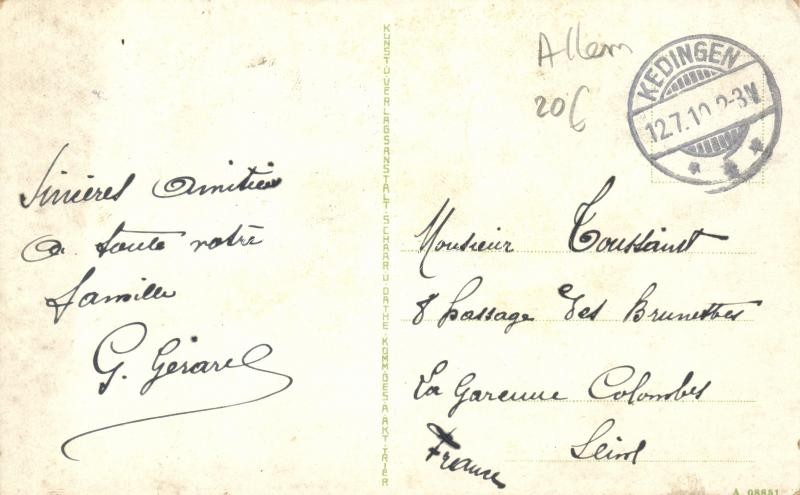 Sincères Amitiés
a toute votre
famille
G. Gérard
KUNST U. VERLAGSANSTALT SCHAAR U. DATHE · KOMM-GES A. AKT. TRIER
Allem
20€
KEDINGEN
12.7.10 2-3N
Monsieur Toussaint
8 passage des Brunettes
La Garenne Colombes
Seine
France
A 08851